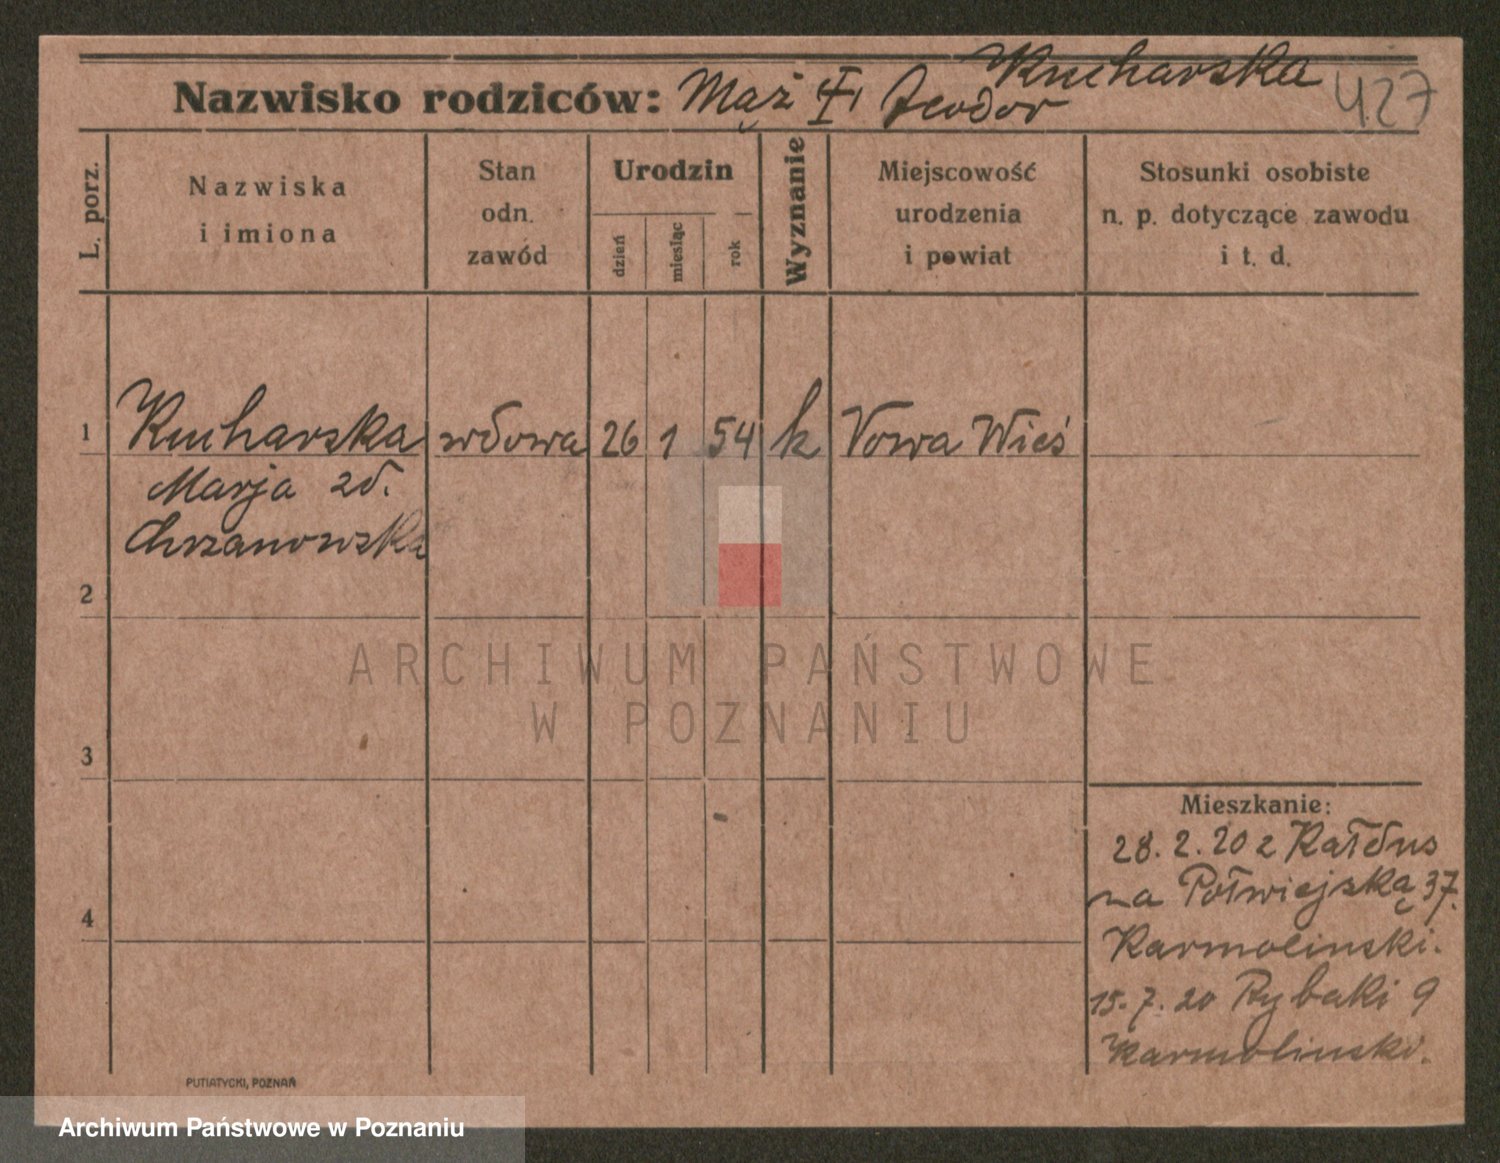 Kucharska
Nazwisko rodziców: Mąż I, Teodor 427
L. porz.
Nazwiska
i imiona
Stan
odn.
zawód
Urodzin
dzień
miesiąc
rok
Wyznanie
Miejscowość
urodzenia
i powiat
Stosunki osobiste
n. p. dotyczące zawodu
i t. d.
1 Kucharska wdowa 26 1 54 k Nowa Wieś
Marja 2d.
Chrzanowska
2
3
4
Mieszkanie:
28. 2. 20 z Kałdus
na Półwiejską 37.
Karmolinski.
15. 7. 20 Rybaki 9
Karmolinski.
PUTIATYCKI, POZNAŃ
ARCHIWUM PAŃSTWOWE
W POZNANIU
Archiwum Państwowe w Poznaniu